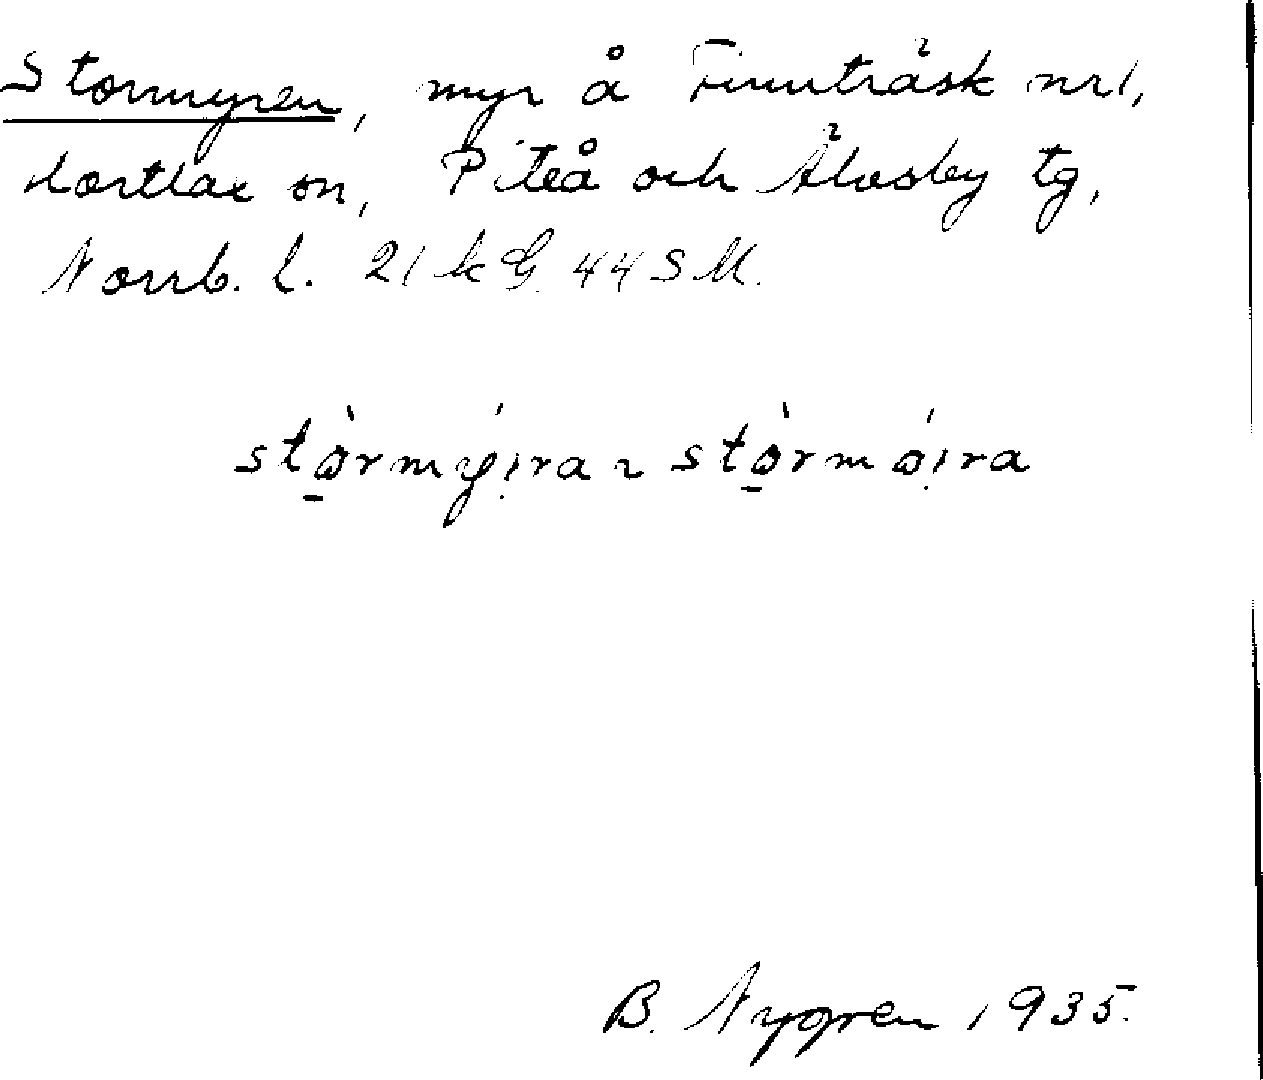 Stormyren, myr å Finnträsk nr 1,
Hortlax sn, Piteå och Älvsby tg,
Norrb. l. 21 k G. 44 S M.
stò̠rmýıra ~ stò̠rmǿıra
B. Nygren 1935.